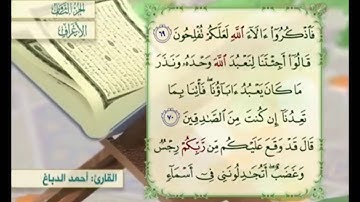 الجزء الثامن
الأعراف
فَاذْكُرُوا ءَالَاءَ اللَّهِ لَعَلَّكُمْ تُفْلِحُونَ ٦٩
قَالُوا أَجِئْتَنَا لِنَعْبُدَ اللَّهَ وَحْدَهُ وَنَذَرَ
مَا كَانَ يَعْبُدُ ءَابَاؤُنَا فَأْتِنَا بِمَا
تَعِدُنَا إِن كُنتَ مِنَ الصَّادِقِينَ ٧٠
قَالَ قَدْ وَقَعَ عَلَيْكُم مِّن رَّبِّكُمْ رِجْسٌ
وَغَضَبٌ أَتُجَادِلُونَنِي فِي أَسْمَاءٍ
القارئ: أحمد الدباغ